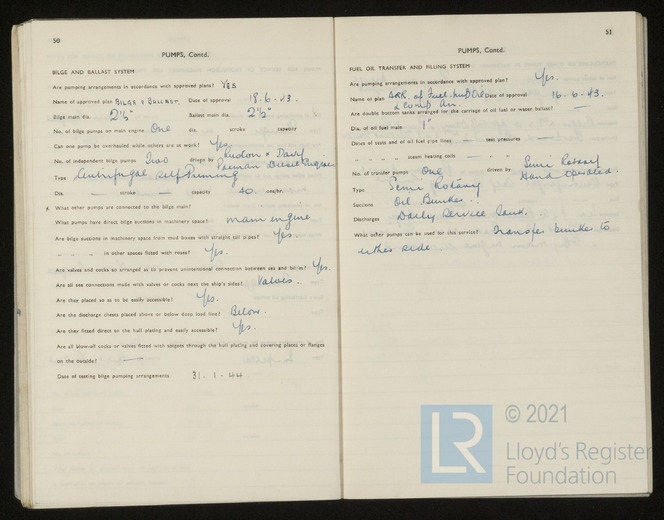 50
PUMPS, Contd.
BILGE AND BALLAST SYSTEM
Are pumping arrangements in accordance with approved plans? Yes
Name of approved plan BILGE & BALLAST. Date of approval 18.6.43.
Bilge main dia. 2½" Ballast main dia. 2½"
No. of bilge pumps on main engine One dia. stroke capacity
Can one pump be overhauled while others are at work? Yes.
No. of independent bilge pumps Two driven by Ruston & Dary
Type Centrifugal Self Priming
Dia. — stroke — capacity 40 tons/hr.
What other pumps are connected to the bilge main?
What pumps have direct bilge suctions in machinery space? Main engine
Are bilge suctions in machinery space from mud boxes with straight tail pipes? Yes.
" " " in other spaces fitted with roses? Yes.
Are valves and cocks so arranged as to prevent unintentional connection between sea and bilges? Yes.
Are all sea connections made with valves or cocks next the ship's sides? Valves.
Are they placed so as to be easily accessible? Yes.
Are the discharge chests placed above or below deep load line? Below.
Are they fitted direct to the hull plating and easily accessible? Yes.
Are all blow-off cocks or valves fitted with spigots through the hull plating and covering plates or flanges
on the outside? —
Date of testing bilge pumping arrangements 31.1.44
51
PUMPS, Contd.
FUEL OIL TRANSFER AND FILLING SYSTEM
Are pumping arrangements in accordance with approved plan? Yes.
Name of plan ARR. of Fuel Oil Date of approval 16-6-43.
Are double bottom tanks arranged for the carriage of oil fuel or water ballast? —
Dia. of oil fuel main 1"
Dates of tests and of oil fuel pipe lines — test pressures —
" " " " steam heating coils — " —
No. of transfer pumps One driven by Semi Rotary
Hand operated.
Type Semi Rotary
Suctions Oil Bunker.
Discharges Daily Service Tank.
What other pumps can be used for this service? Transfer bunker to
either side
LR
© 2021
Lloyd's Register
Foundation